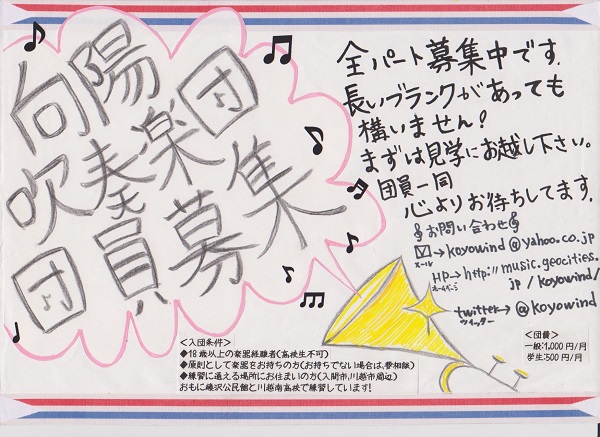 向陽
吹奏楽団
団員募集
全パート募集中です.
長いブランクがあっても
構いません!
まずは見学にお越し下さい。
団員一同
心よりお待ちしてます.
お問い合わせ
メール→koyowind@yahoo.co.jp
HP→http://music.geocities.
ホームページ
jp/koyowind/
twitter→@koyowind
ツイッター
<入団条件>
◆18歳以上の楽器経験者(高校生不可)
◆原則として楽器をお持ちの方(お持ちでない場合は、要相談)
◆練習に通える場所にお住まいの方(入間市,川越市周辺)
おもに藤沢公民館と川越南高校で練習しています!
<団費>
一般:1,000円/月
学生:500円/月